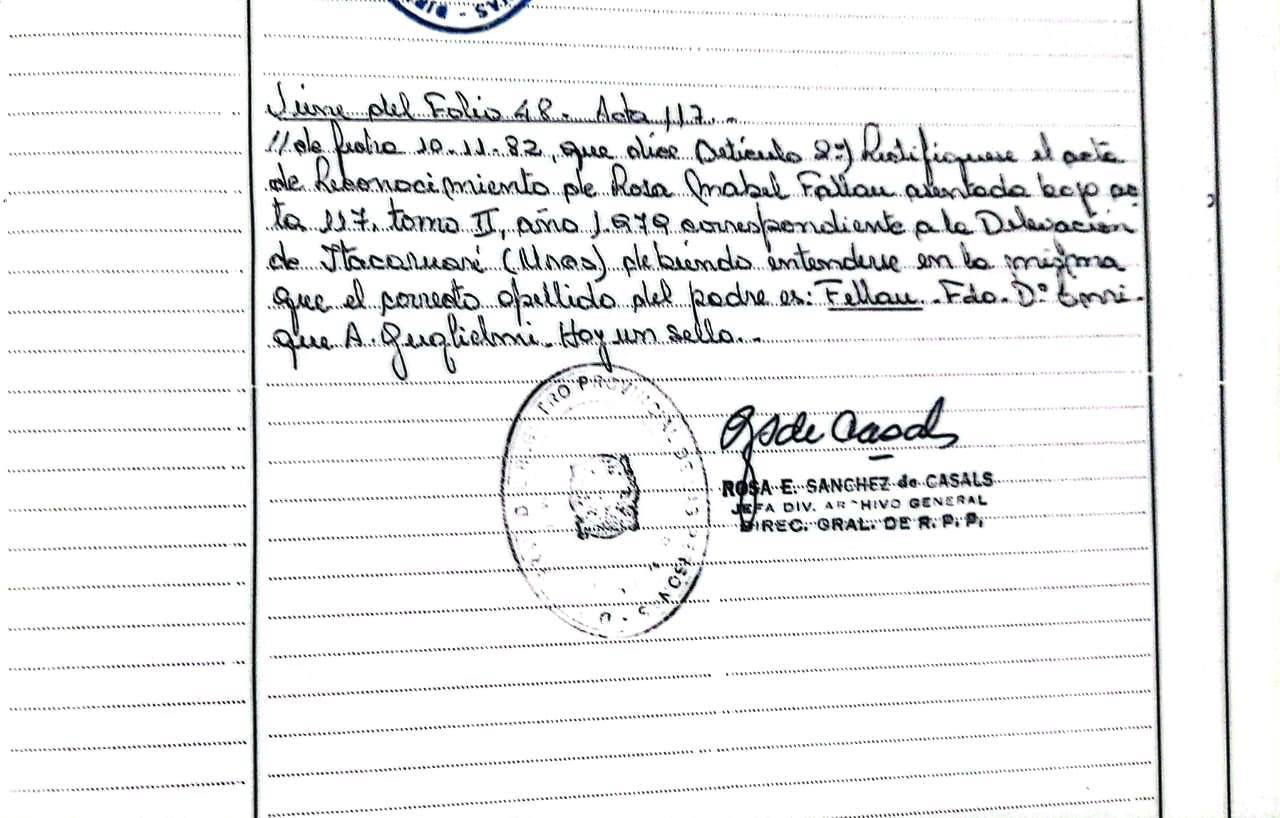 Viene del Folio 48.- Acta 117.-
//de fecha 10-11-82, que dice Artículo 2º) Rectifiquese el acta
de Reconocimiento de Rosa Mabel Fallau asentada bajo ac
ta 117, tomo II, año 1.979 correspondiente a la Delegación
de Itacaruaré (Mnes) debiendo entenderse en la misma
que el correcto apellido del padre es: Fellau. Fdo. Dº Enri-
que A. Guglielmi. Hay un sello.-
PROVINCIAL DE
ROSA E. SANCHEZ de CASALS
JEFA DIV. ARCHIVO GENERAL
DIREC. GRAL. DE R. P. P.